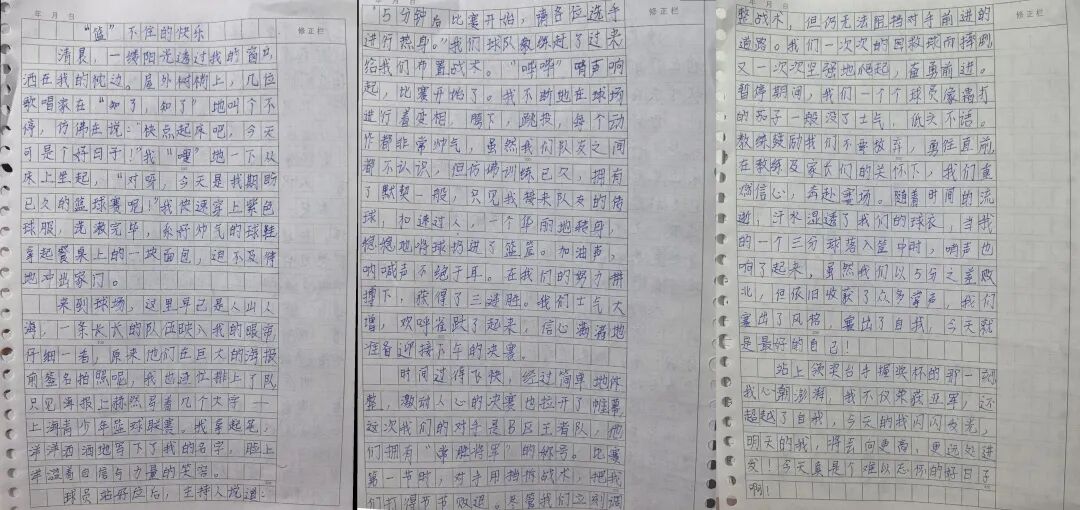 年 月 日
修正栏
“篮”不住的快乐
清晨,一缕阳光透过我的窗口
洒在我的枕边。屋外树梢上,几位
歌唱家在“知了,知了”地叫个不
停,仿佛在说:“快点起床吧,今天
可是个好日子!”我“嗖”地一下从
床上坐起,“对呀,今天是我期盼
已久的篮球赛呢!”我快速穿上紫色
球服,洗漱完毕,系好帅气的球鞋
拿起餐桌上的一块面包,迫不及待
地冲出家门。
来到球场,这里早已是人山人
海,一条长长的队伍映入我的眼帘
仔细一看,原来他们在巨大的海报
前签名拍照呢,我也连忙排上了队
只见海报上赫然写着几个大字——
上海青少年篮球联赛。我拿起笔,
洋洋洒洒地写下了我的名字,脸上
洋溢着自信与力量的笑容。
球员站好位后,主持人说道:
“5分钟后比赛开始,请各位选手
进行热身。”我们球队教练赶了过来
给我们布置战术。“哔哔”哨声响
起,比赛开始了。我不断地在球场
进行着变相,胯下,跳投,每个动
作都非常帅气,虽然我们队友之间
都不认识,但仿佛训练已久,拥有
了默契一般,只见我接来队友的传
球,加速过人,一个华丽地转身,
稳稳地将球扔进了篮筐。加油声,
呐喊声不绝于耳。在我们的努力拼
搏下,获得了三连胜。我们士气大
增,欢呼雀跃了起来,信心满满地
准备迎接下午的决赛。
时间过得飞快,经过简单地休
整,激动人心的决赛也拉开了帷幕
这次我们的对手是B区王者队,他
们拥有“常胜将军”的称号。比赛
第一节时,对手用挡拆战术,把我
们打得节节败退。尽管我们立刻调
年 月 日
修正栏
整战术,但仍无法阻挡对手前进的
道路。我们一次次的因救球而摔倒
又一次次坚强地爬起,奋勇前进。
暂停期间,我们一个个球员像霜打
的茄子一般没了士气,低头不语。
教练鼓励我们不要放弃,勇往直前
在教练及家长们的关怀下,我们重
燃信心,奔赴赛场。随着时间的流
逝,汗水湿透了我们的球衣,当我
的一个三分球落入筐中时,哨声也
响了起来,虽然我们以5分之差败
北,但依旧收获了众多掌声,我们
赛出了风格,赛出了自我,今天就
是最好的自己!
站上领奖台手握奖杯的那一刻
我心潮澎湃,我不仅荣获亚军,还
超越了自我,今天的我闪闪发光,
明天的我,将去向更高,更远处进
发!今天真是个难以忘怀的好日子
啊!